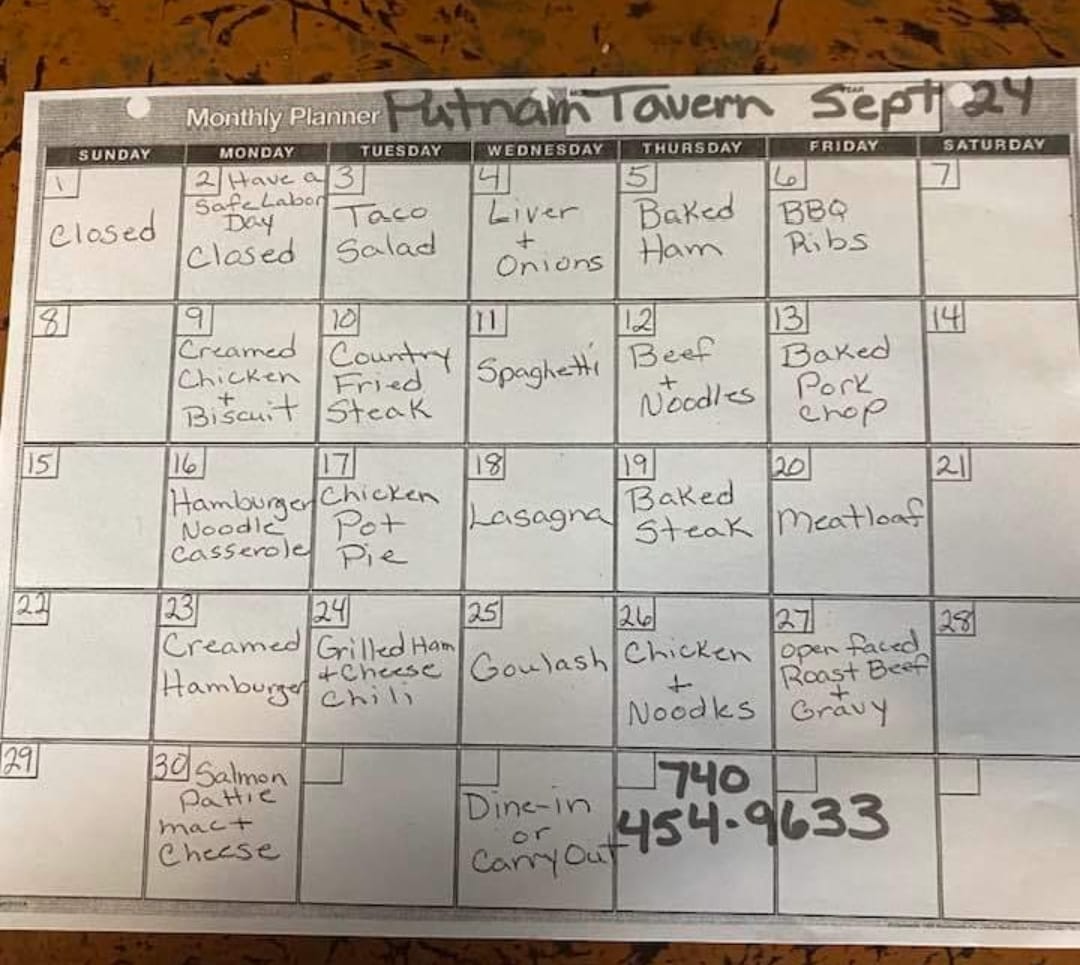 Monthly Planner Putnam Tavern Sept 24
SUNDAY MONDAY TUESDAY WEDNESDAY THURSDAY FRIDAY SATURDAY
1
Closed
2 Have a
Safe Labor
Day
Closed
3
Taco
Salad
4
Liver
+
Onions
5
Baked
Ham
6
BBQ
Ribs
7
8
9
Creamed
Chicken
+
Biscuit
10
Country
Fried
Steak
11
Spaghetti
12
Beef
+
Noodles
13
Baked
Pork
Chop
14
15
16
Hamburger
Noodle
Casserole
17
Chicken
Pot
Pie
18
Lasagna
19
Baked
Steak
20
Meatloaf
21
22
23
Creamed
Hamburger
24
Grilled Ham
+ Cheese
Chili
25
Goulash
26
Chicken
+
Noodles
27
Open Faced
Roast Beef
+
Gravy
28
29
30 Salmon
Pattie
mac +
Cheese
Dine-in
or
Carry Out
740
454-9633